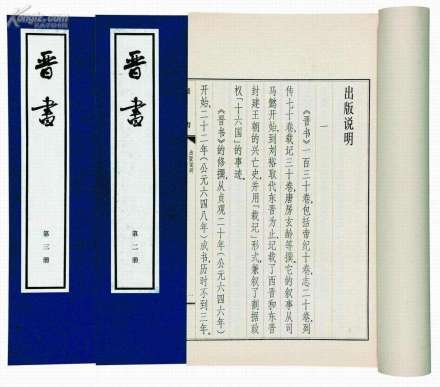 Kongfz.com
晋书
第三册
晋书
第二册
出版说明
一
《晋书》一百三十卷,包括帝纪十卷,志二十卷,列
传七十卷,载记三十卷,唐房玄龄等撰。它的叙事从司
马懿开始,到刘裕取代东晋为止,记载了西晋和东晋
封建王朝的兴亡史,并用「载记」形式,兼叙了割据政
权「十六国」的事迹。
《晋书》的修撰,从贞观二十年(公元六四六年)
开始,二十二年(公元六四八年)成书,历时不到三年。